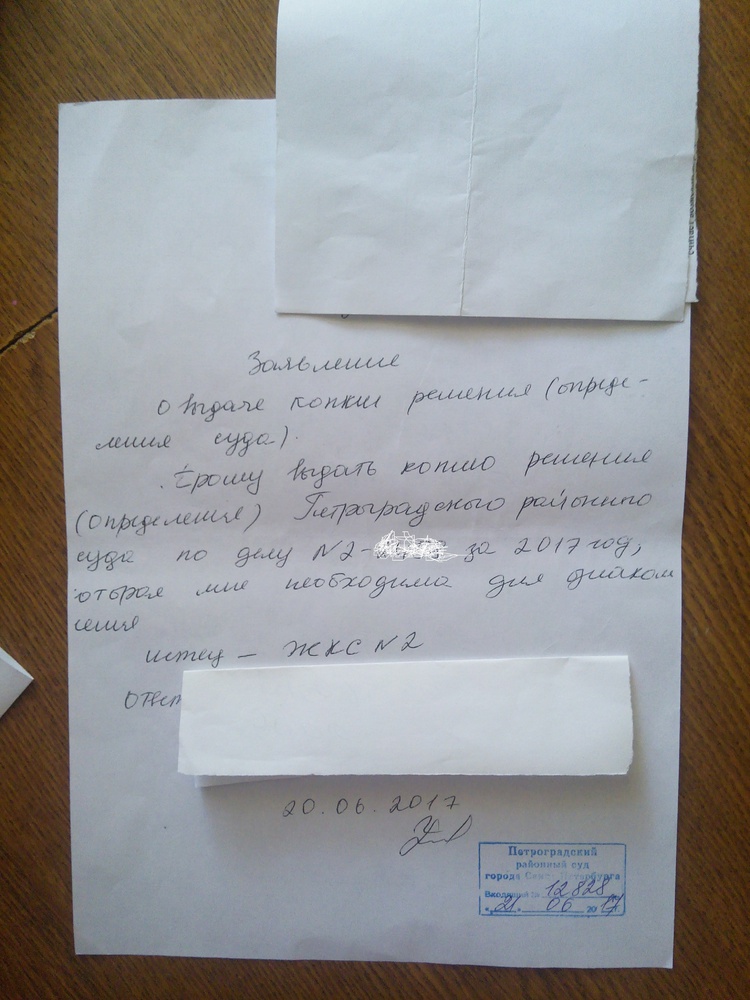 Заявление
О выдаче копии решения (опреде-
ления суда).
Прошу выдать копию решения
(определения) Петроградского районного
суда по делу N2- за 2017 год,
оторая мне необходима для ознаком
ления
истец - ЖКС N2
Ответ
20.06.2017
Петроградский
районный суд
города Санкт-Петербурга
Входящий № 12828
"21" 06 2017 г.